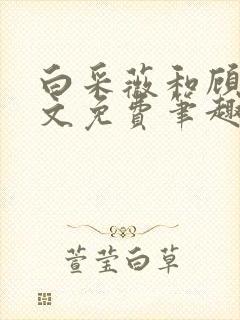 白采薇和顾
文免费笔趣
萱莹白草